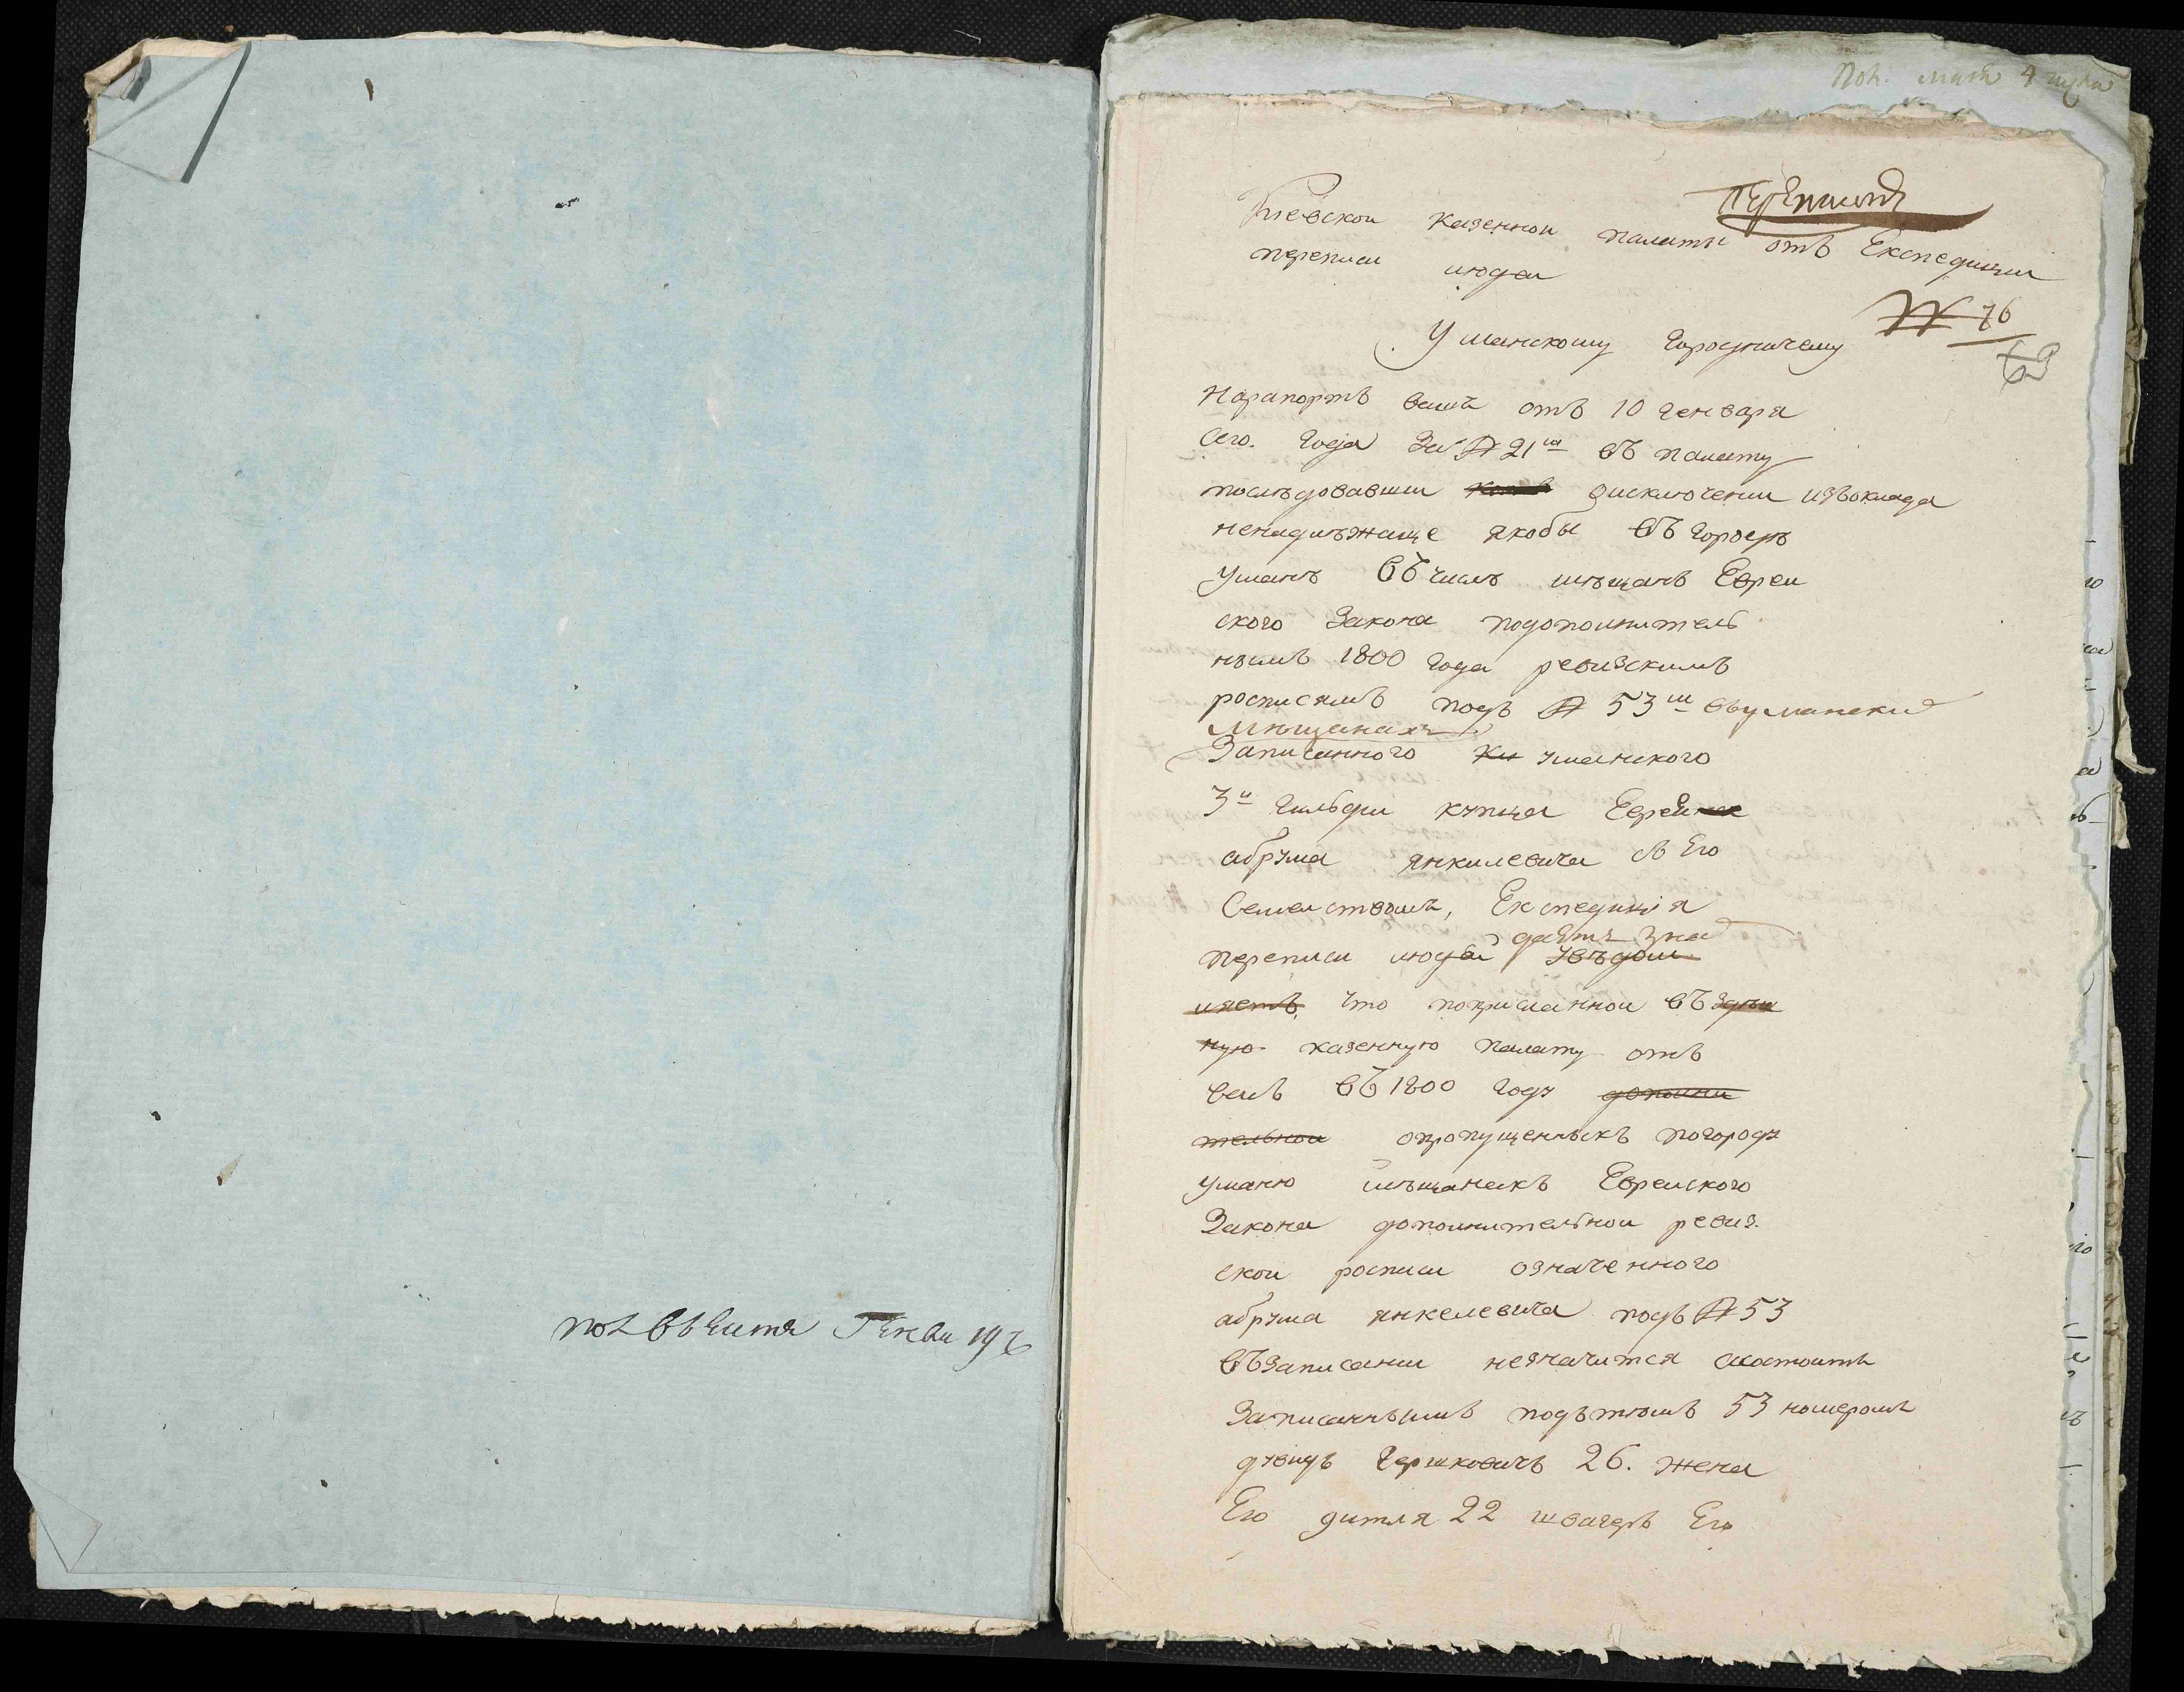 Киевской казенной палаты отъ Експедиции
переписи людей
№ 76
Уманскому Городничему
На рапортъ вашъ отъ 10 генваря
сего года за № 21м въ палату
последовавши о исключении изъ оклада
ненадлежаще якобы въ городѣ
уманѣ въ числѣ мѣщанъ Еврей
ского Закона по дополнитель
нымъ 1800 года ревизскимъ
росписямъ подъ № 53м въ уманских
мѣщанахъ
Записанного уманского
3й гильдии купца Еврея
абрума янкилевича съ Его
Семействомъ, Експедиція
даетъ знать
переписи людей увѣдом
ляетъ, что по присланной въ здѣш
ную казенную палату отъ
васъ въ 1800 году дополни
тельной о пропущенныхъ по городу
уманю мѣщанахъ Еврейского
Закона дополнительной ревиз
ской росписи означенного
абрума янкелевича подъ № 53
въ записании незначится а состоитъ
Записаннымъ подъ тѣмъ 53 номеромъ
дувидъ Гершковичъ 26. жена
Его дитля 22 швагеръ Его